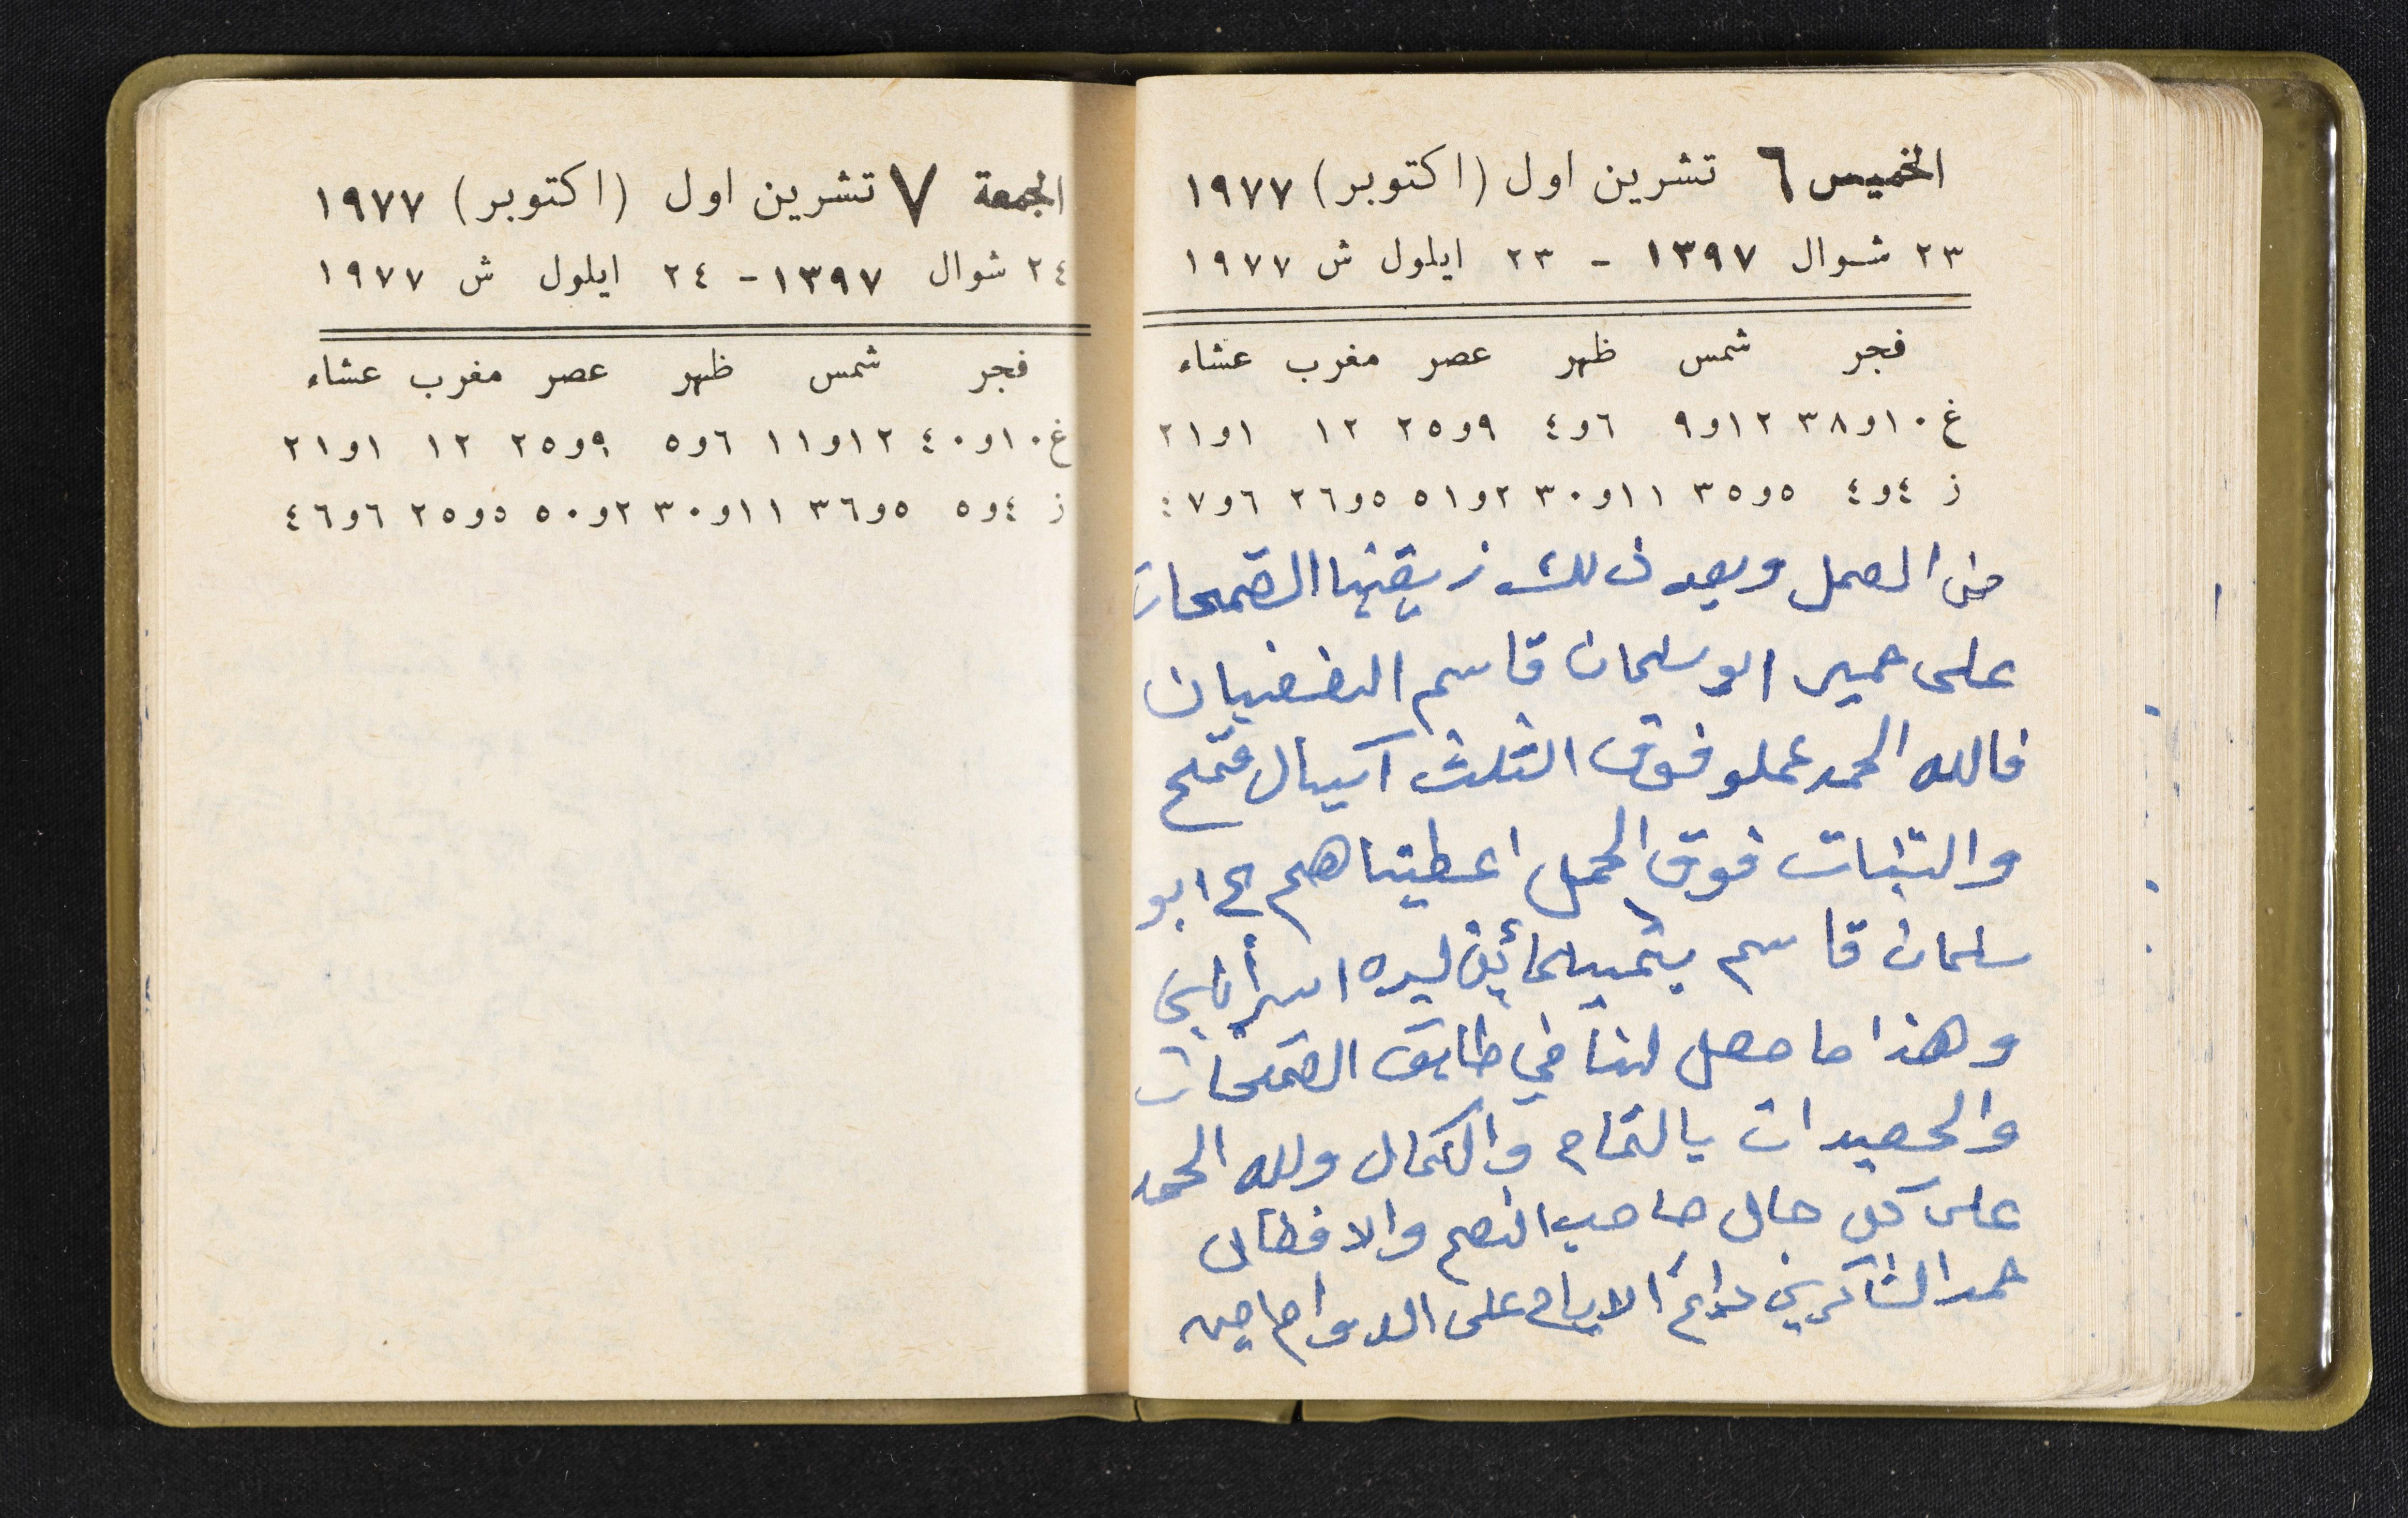 الخميس ٦ تشرين اول (اكتوبر) ١٩٧٧
٢٣ شوال ١٣٩٧ - ٢٣ ايلول ش ١٩٧٧
فجر شمس ظهر عصر مغرب عشاء
غ ١٠و٣٨ ١٢و٩ ٦و٤ ٩و٢٥ ١٢ ١و٢١
ز ٤و٤ ٥و٣٥ ١١و٣٠ ٢و٥١ ٥و٢٦ ٦و٧
من العمل وبعد ذلك زيقنها القمحات
على حمير ابو سلمان قاسم الغضبان
فالله الحمد عملو فوق الثلث آكيال قمح
والتبنات فوق الحمل اعطيناهم الى ابو
سلمان قاسم ليره
وهذا ما حصل لنا في القمحات
والحصيدات بالتمام والكمال ولله الحمد
على كل حال صاحب النعم والافضال
حمد الشاكرين دائم الايام على الدوام
الجمعة ٧ تشرين اول (اكتوبر) ١٩٧٧
٢٤ شوال ١٣٩٧ - ٢٤ ايلول ش ١٩٧٧
فجر شمس ظهر عصر مغرب عشاء
غ ١٠و٤٠ ١٢و١١ ٦و٥ ٩و٢٥ ١٢ ١و٢١
ز ٤و٥ ٥و٣٦ ١١و٣٠ ٢و٥٠ ٥و٢٥ ٦و٤٦